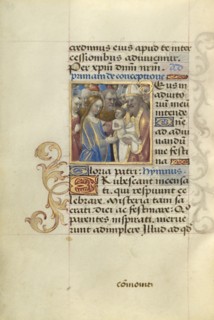 credimus eius apud te inter
cessionibus adiuvemur.
Per xpm dnm nrm. Ad
primam de conceptione
Eus in
adiuto
riu meu
intende
ne
ad adiu
uandu
me festi
na
loria patri: hymnus.
Rubescant
ti. qui respuunt ce
lebrare misteria tam sa
crati. diei ac festinare
parentes inspirati. merue
runt adimplere Illud ad qd